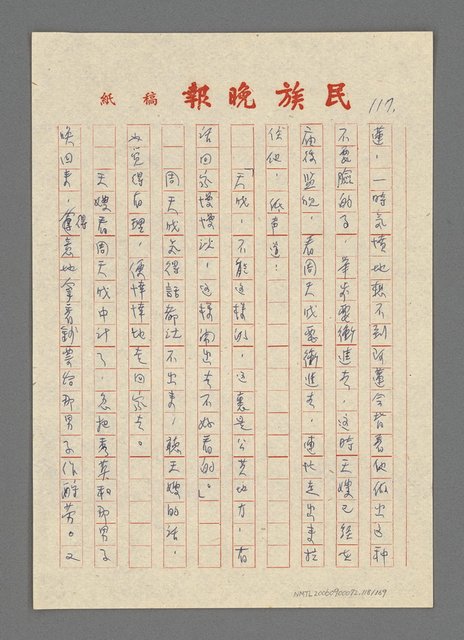 民族晚報 稿紙
117.
蓮，一時氣憤地想不到阿蓮会背著他做出这种
不要臉的事，舉步要衝進去，这時天嫂已經在
庙後監視，看周天成要衝進去，連忙走出來攔
住他，低声道：
「天成，不能这樣的，这裏是公共地方，有
話回家慢慢說，这樣鬧出去不好看的。」
周天成氣得話都說不出來，聽天嫂的話，
也覺得有理，便悻悻地走回家去。
天嫂看周天成中計了，急把秀英和那男子
喚回來，得意地拿著鈔票給那男子作酬劳。又
NMTL20060900092.118/169